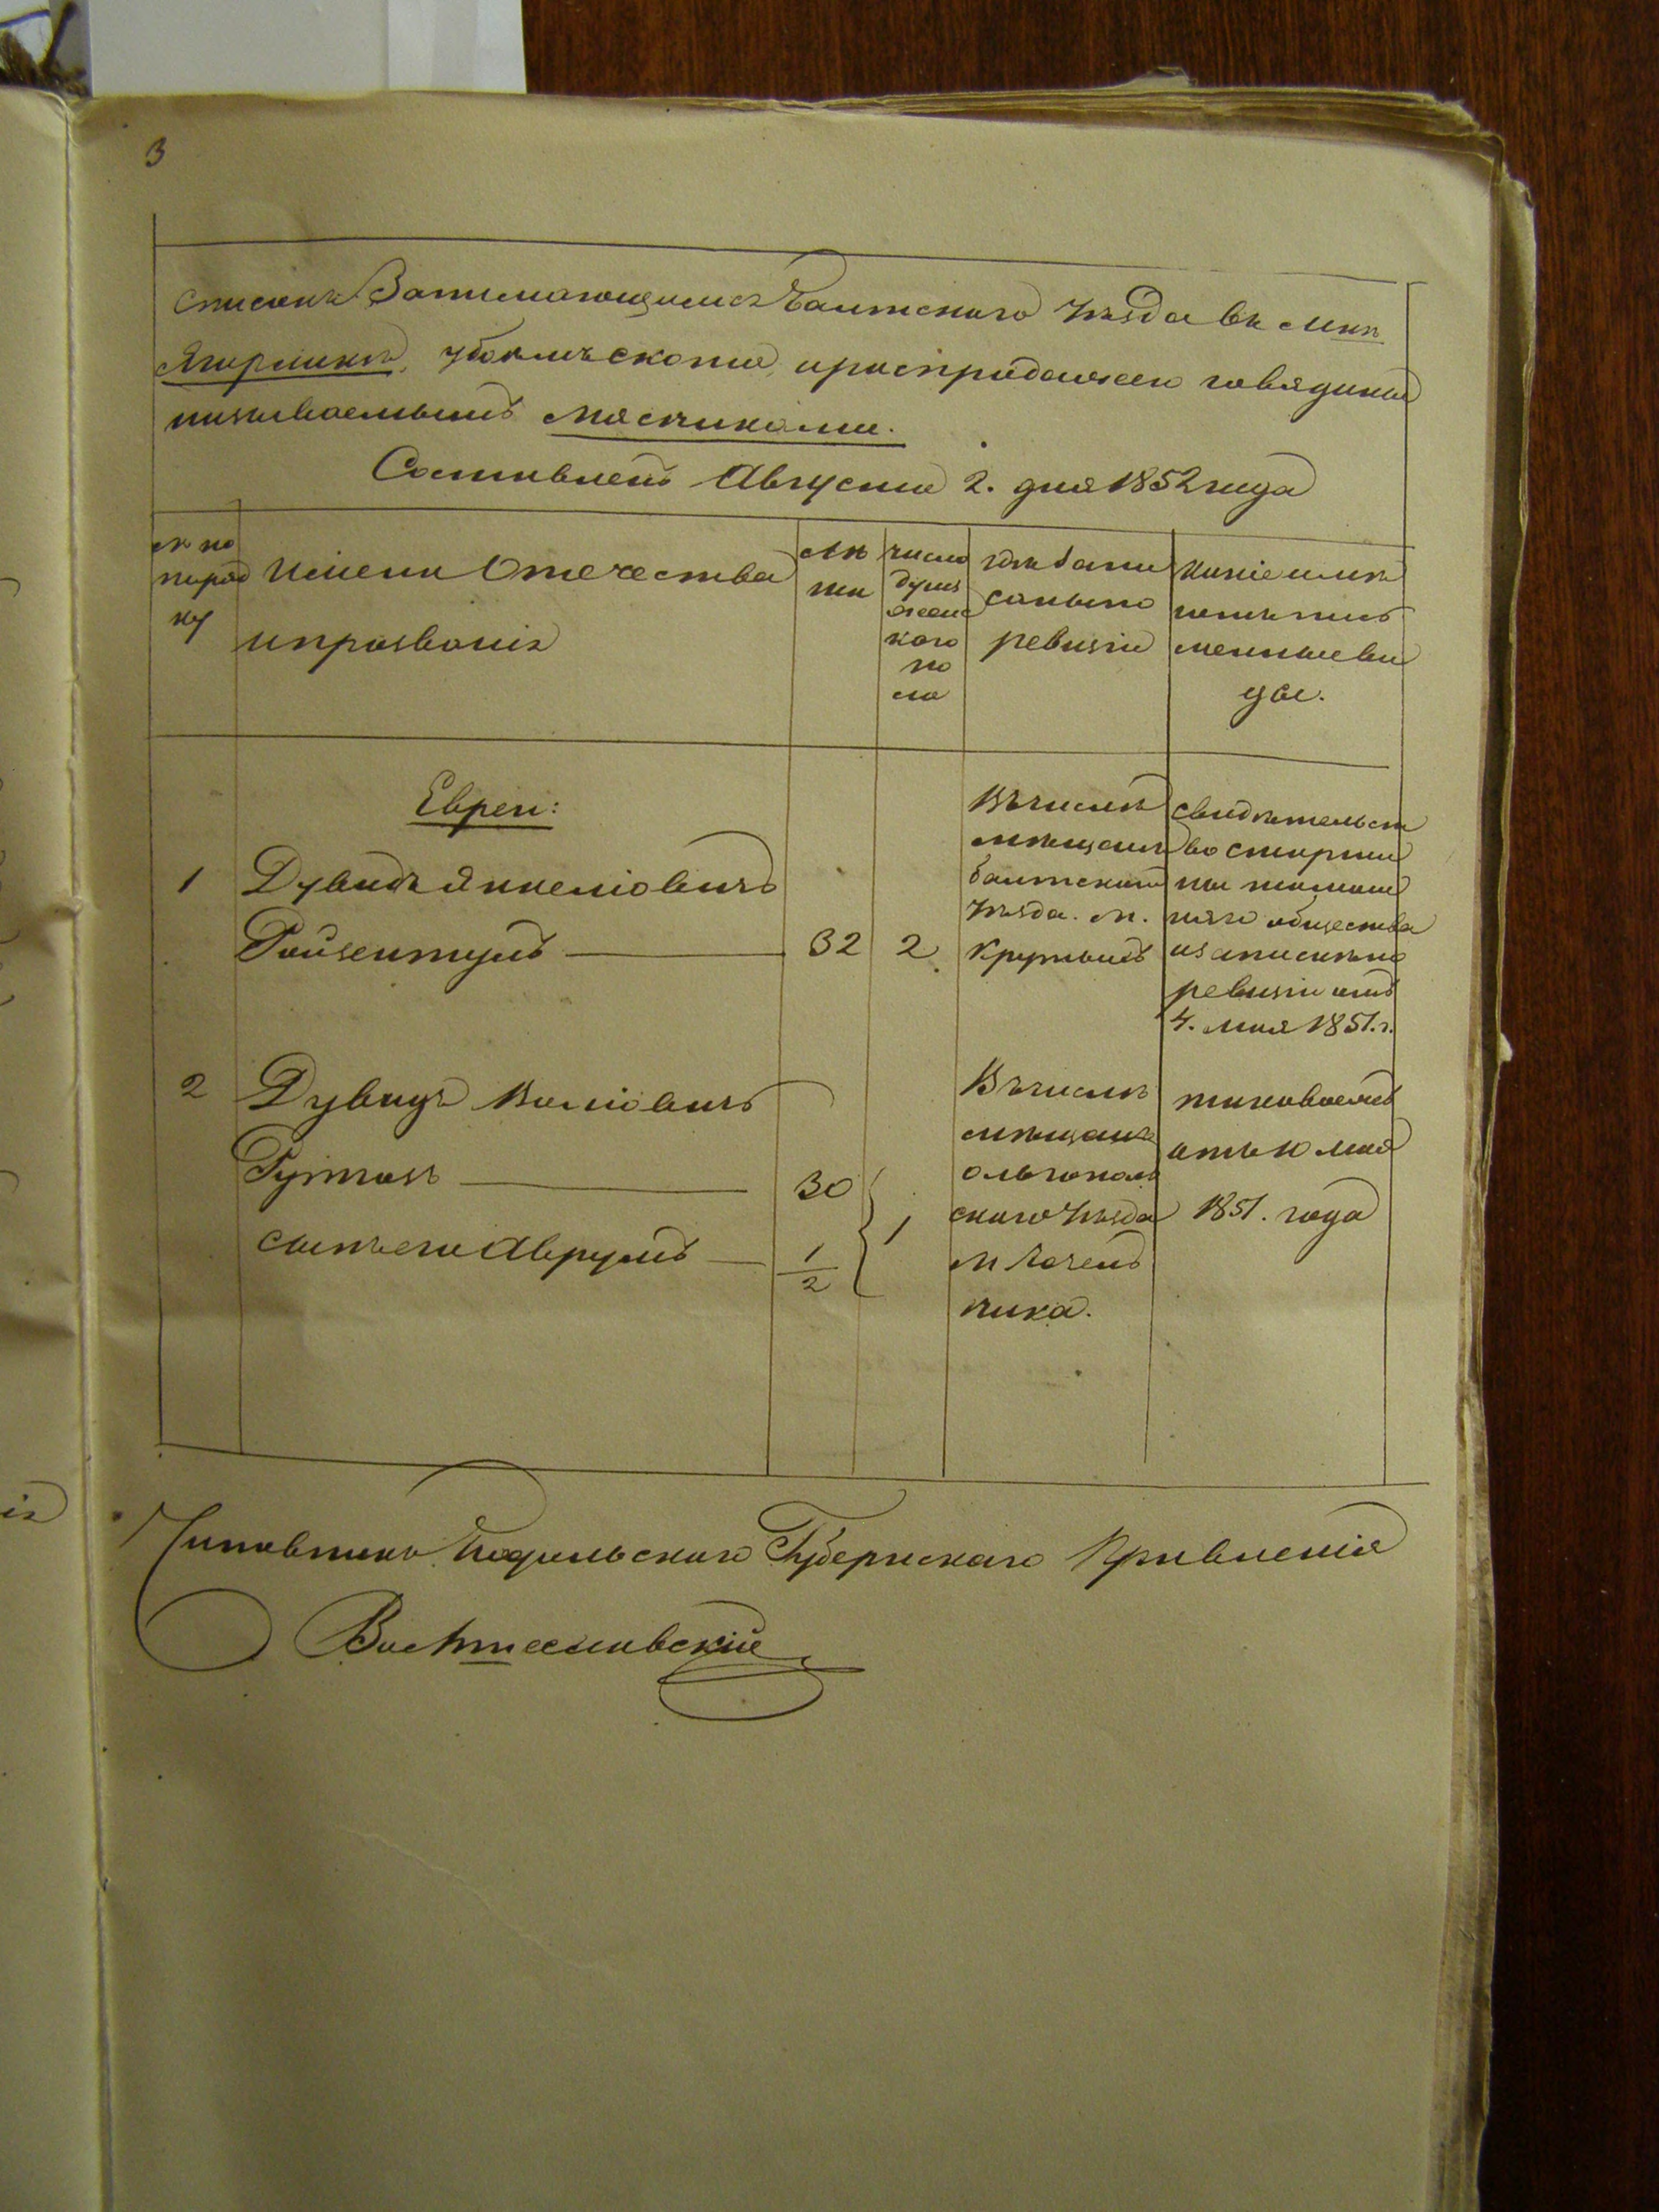 3
Списокъ Занимающимся Балтского Уѣзда въ Мѣс.
Ягорлыкѣ, убоемъ скота, и распродажею говядины
называемымъ мясниками.
Составленъ Августа 2. дня 1852 года
№ по
поряд
ку
Имени Отечества
и прозваніе
Лѣ
та
число
душъ
женс
кого
по
ла
гдѣ запи
саны по
ревизіи
Какіе имѣ
ютъ пись
менные ви
ды.
Евреи:
1
Дувидъ Янкеліовичъ
Ройзентулъ
32
2
Въ числѣ
мѣщанъ
балтского
Уѣзда. М.
Крутыхъ
свидѣтельст
во старши
ны тамош
няго общества
о записи по
ревизіи отъ
4. мая 1851. г.
2
Дувидъ Волiовичъ
Гутмахъ
30
сынъ его Аврумъ
1/2
1
Въ числѣ
мѣщанъ
ольгополь
ского Уѣзда
М
чика.
таковоежъ
отъ 10 мая
1851. года
Чиновникъ Подольского Губернскаго Правленія